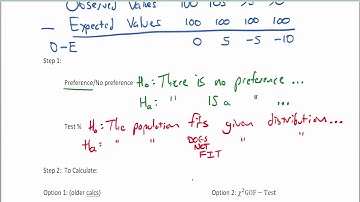 Observed Values 100 105 95 90
— Expected Values 100 100 100 100
O-E 0 5 -5 -10
Step 1:
Preference/No preference Ho: There is no preference ...
Ha: " IS a " ...
Test % Ho: The population fits given distribution...
Ha: " " DOES NOT FIT " "
Step 2: To Calculate:
Option 1: (older calcs) Option 2: χ²GOF − Test